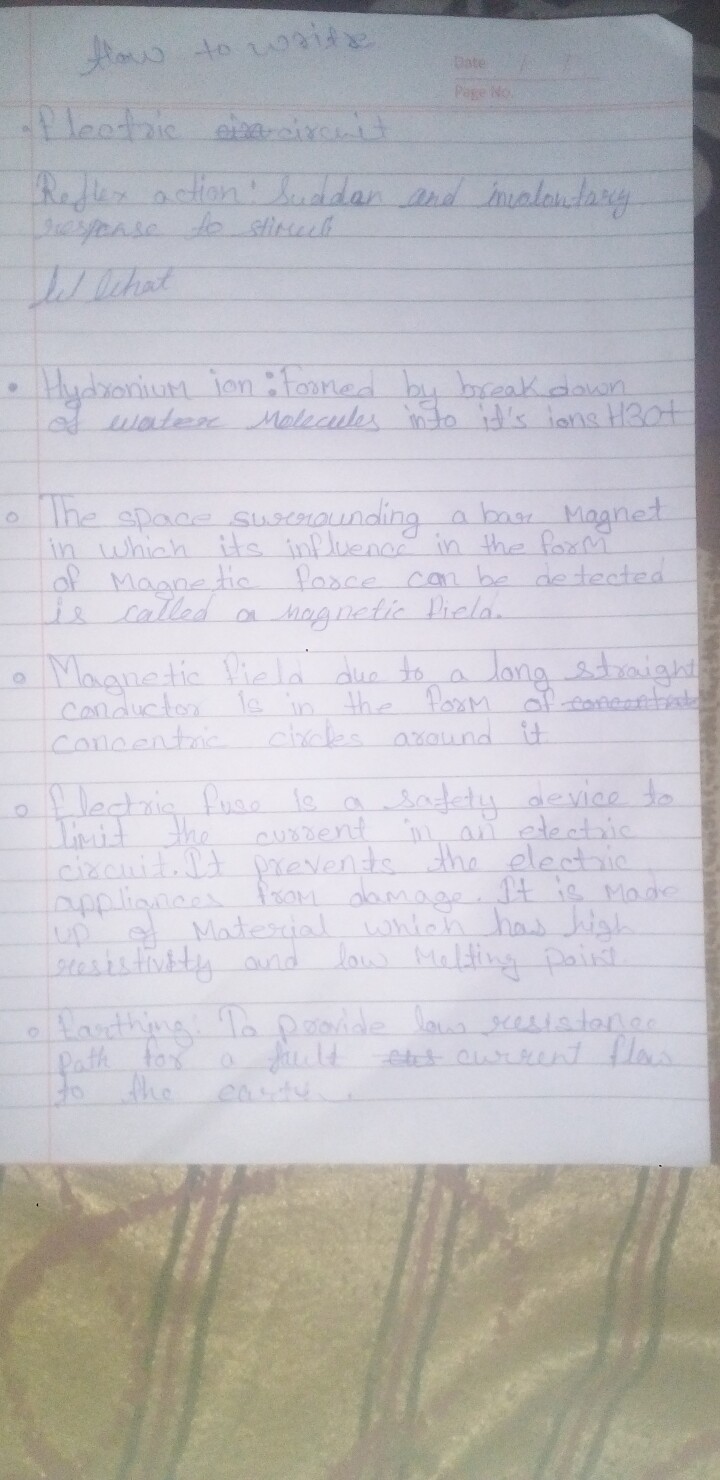 How to write
Date / /
Page No.
Electric circuit
Reflex action: Suddan and involontary
response to stimuli
W What
• Hydronium ion: formed by break down
of water Molecules into it's ions H30+
The space surrounding a bar Magnet
in which its influence in the form
of Magnetic force can be detected
is called a magnetic field.
Magnetic field due to a long straight
conductor is in the form of concentrat
concentric circles around it
Electric fuse is a safety device to
limit the current in an electric
circuit. It prevents the electric
appliances from damage. It is Made
up of Material which has high
resistivity and low Melting point
Earthing: To provide low resistance
path for a fault current flow
to the earth.